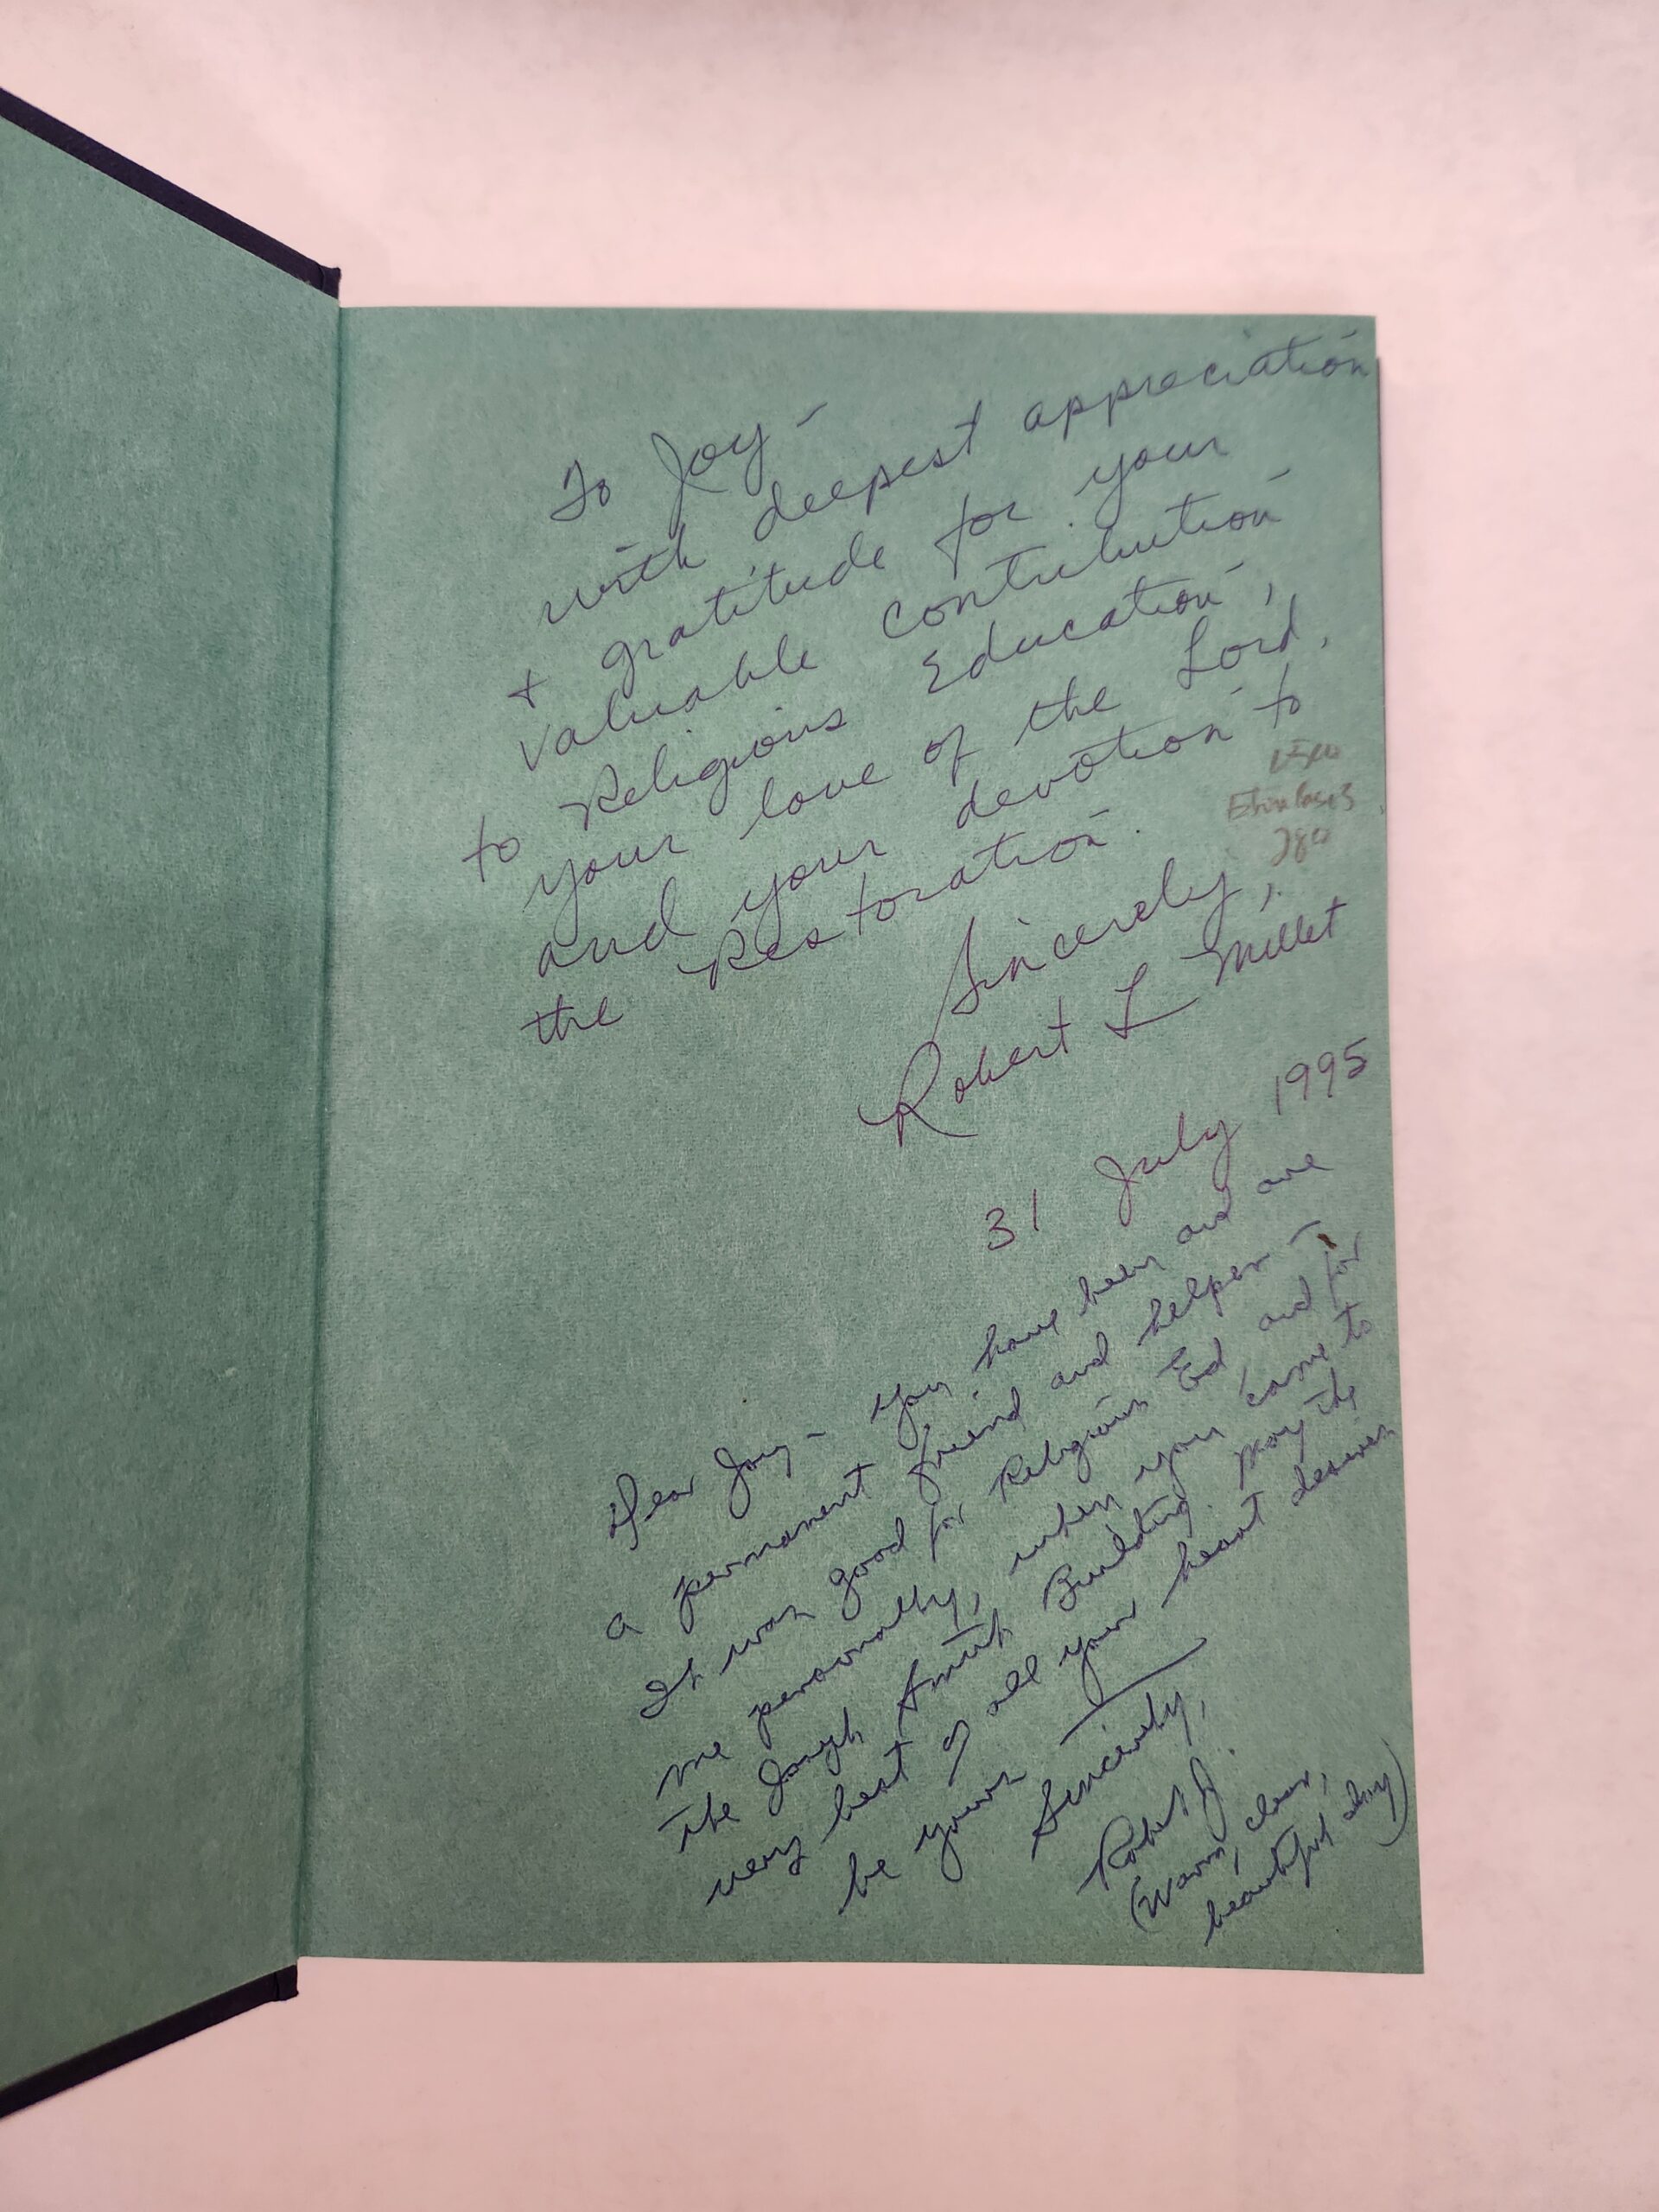 To Joy –
with deepest appreciation
+ gratitude for your
valuable contribution
to Religious Education,
your love of the Lord,
and your devotion to
the Restoration.
Sincerely,
Robert L Millet
31 July 1995
Dear Joy – You have been and are
a permanent friend and helper –
It was good for Religious Ed and for
me personally, when you came to
the Joseph Smith Building. May the
very best of all your heart desires
be yours
Sincerely,
Robert J.
(Warm, clear,
beautiful day)